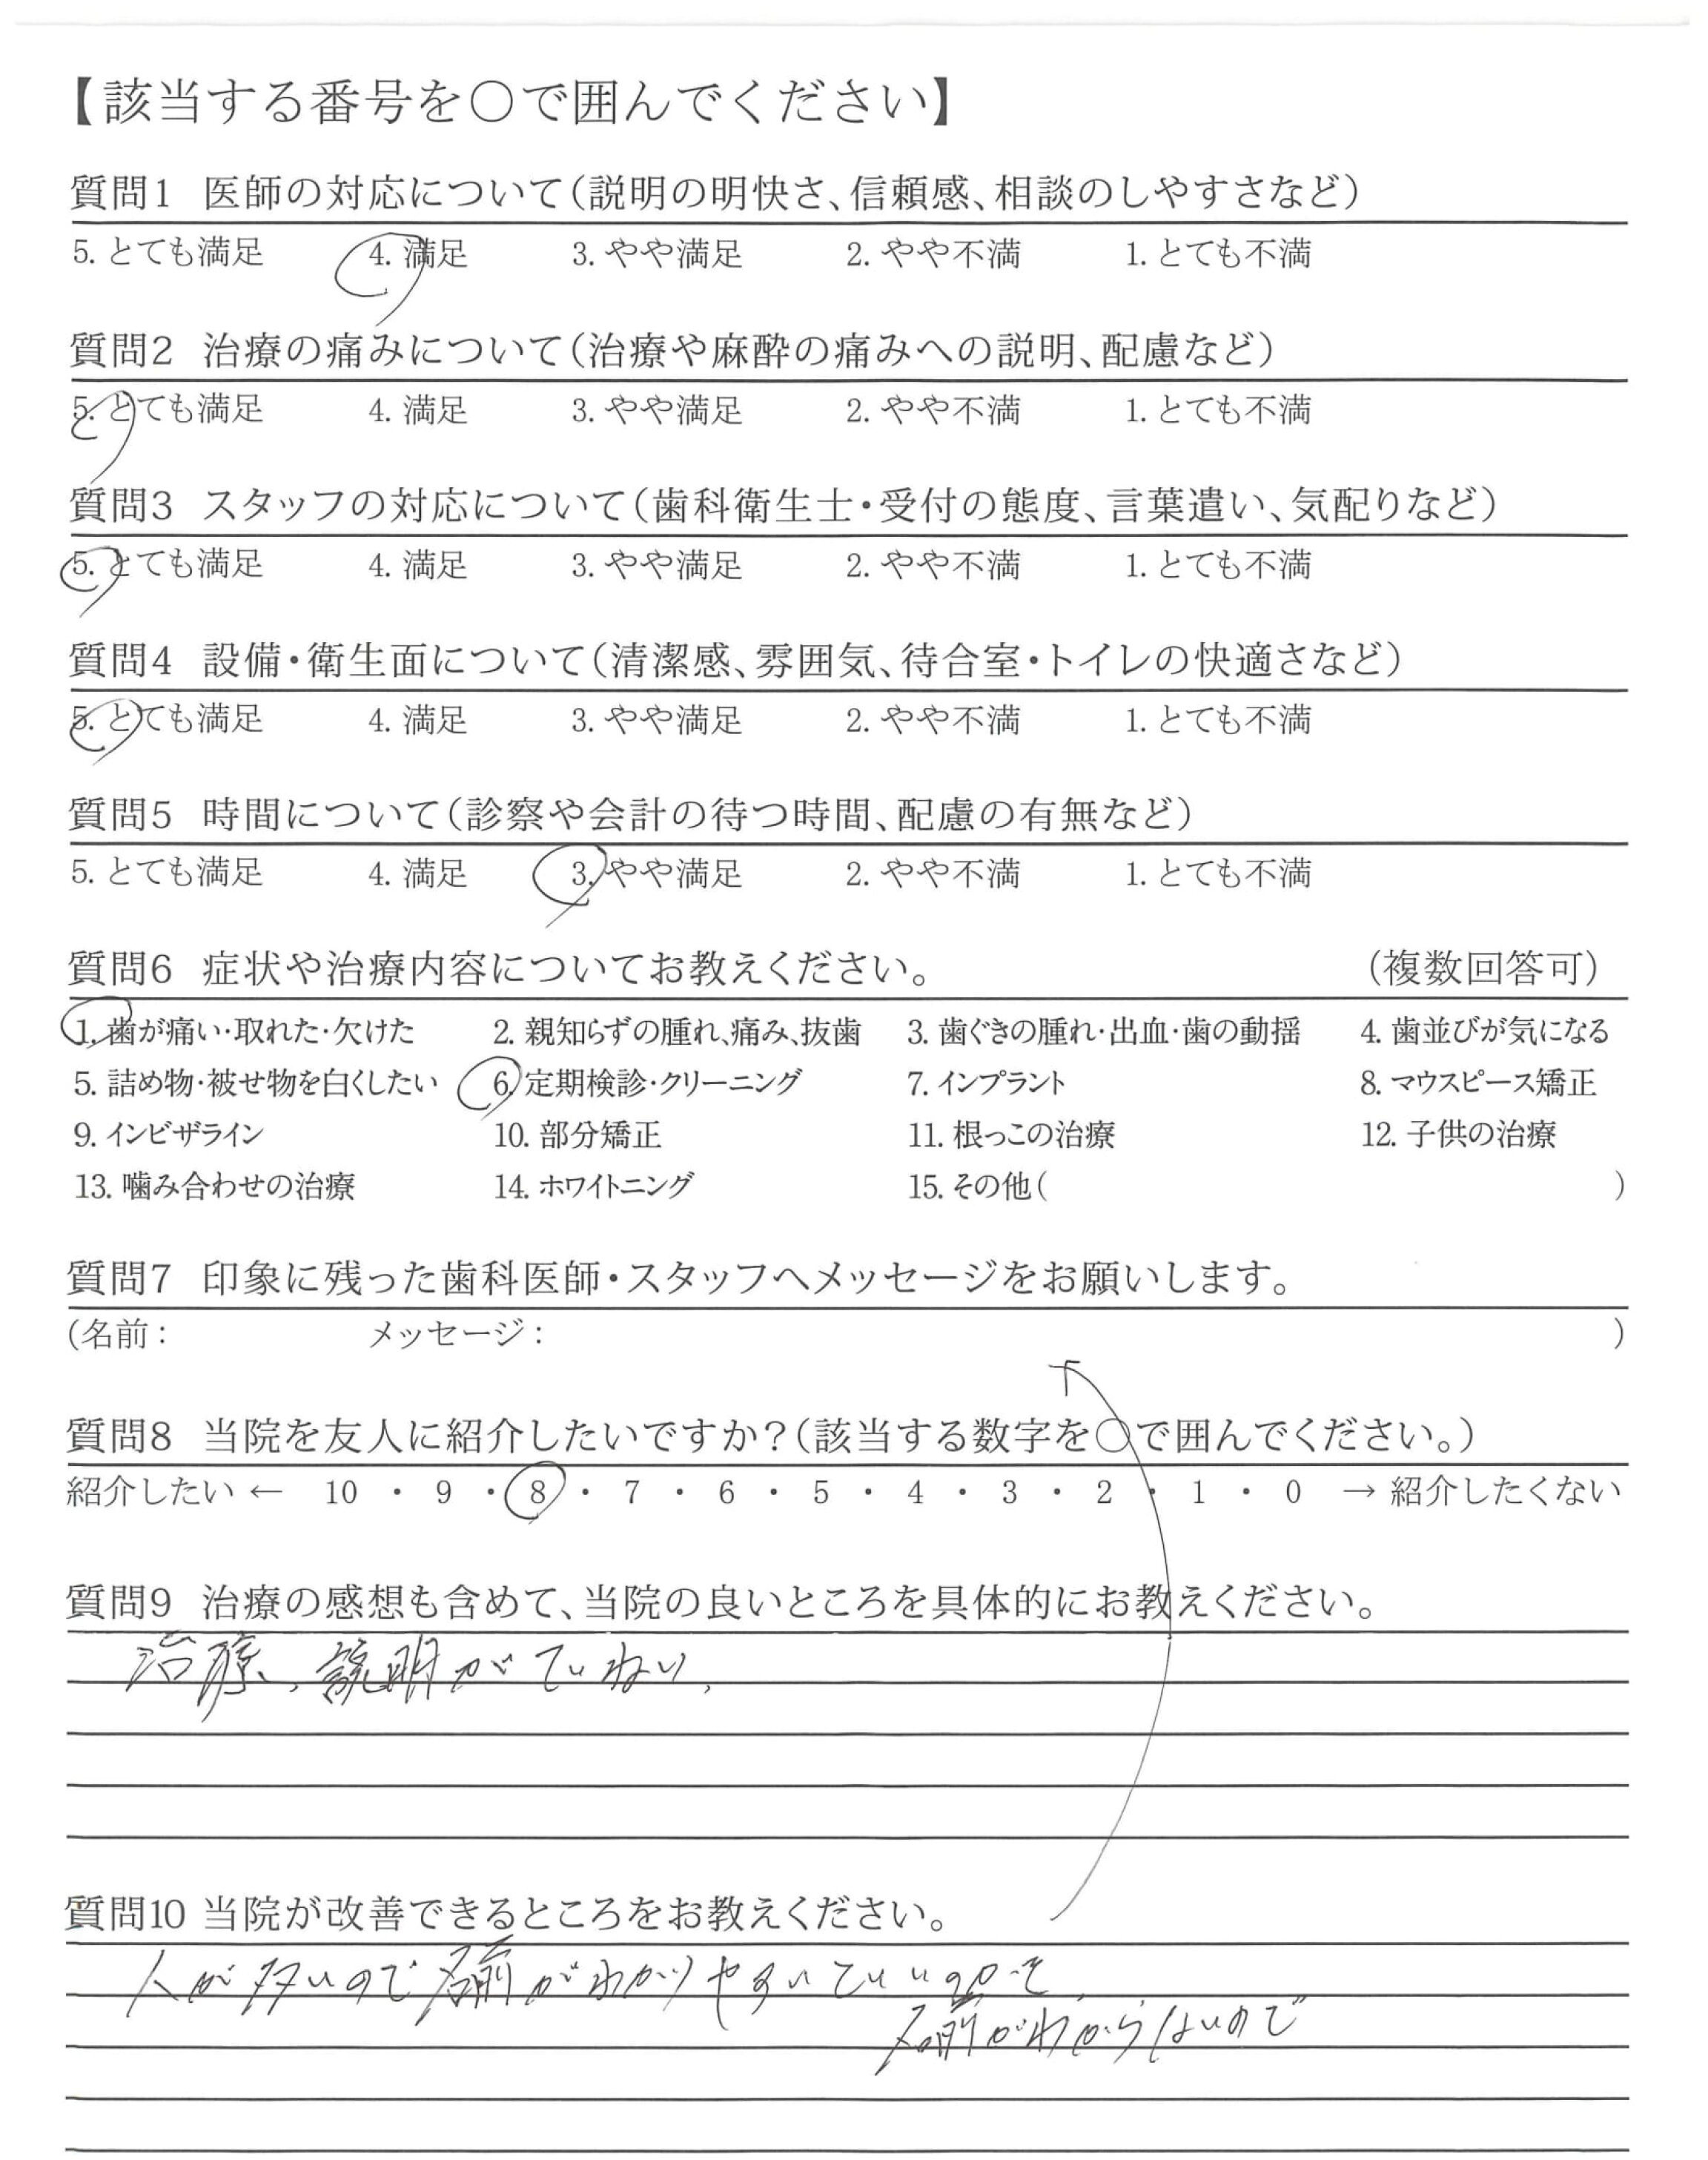 【該当する番号を○で囲んでください】
質問1 医師の対応について(説明の明快さ、信頼感、相談のしやすさなど)
5. とても満足 4. 満足 3. やや満足 2. やや不満 1. とても不満
質問2 治療の痛みについて(治療や麻酔の痛みへの説明、配慮など)
5. とても満足 4. 満足 3. やや満足 2. やや不満 1. とても不満
質問3 スタッフの対応について(歯科衛生士・受付の態度、言葉遣い、気配りなど)
5. とても満足 4. 満足 3. やや満足 2. やや不満 1. とても不満
質問4 設備・衛生面について(清潔感、雰囲気、待合室・トイレの快適さなど)
5. とても満足 4. 満足 3. やや満足 2. やや不満 1. とても不満
質問5 時間について(診察や会計の待つ時間、配慮の有無など)
5. とても満足 4. 満足 3. やや満足 2. やや不満 1. とても不満
質問6 症状や治療内容についてお教えください。 (複数回答可)
1. 歯が痛い・取れた・欠けた 2. 親知らずの腫れ、痛み、抜歯 3. 歯ぐきの腫れ・出血・歯の動揺 4. 歯並びが気になる
5. 詰め物・被せ物を白くしたい 6. 定期検診・クリーニング 7. インプラント 8. マウスピース矯正
9. インビザライン 10. 部分矯正 11. 根っこの治療 12. 子供の治療
13. 噛み合わせの治療 14. ホワイトニング 15. その他( )
質問7 印象に残った歯科医師・スタッフへメッセージをお願いします。
(名前: メッセージ: )
質問8 当院を友人に紹介したいですか?(該当する数字を○で囲んでください。)
紹介したい ← 10 ・ 9 ・ 8 ・ 7 ・ 6 ・ 5 ・ 4 ・ 3 ・ 2 ・ 1 ・ 0 → 紹介したくない
質問9 治療の感想も含めて、当院の良いところを具体的にお教えください。
治療、説明がていねい、
質問10 当院が改善できるところをお教えください。
人が多いので名前がわかりやすいといい
名前がわからないので